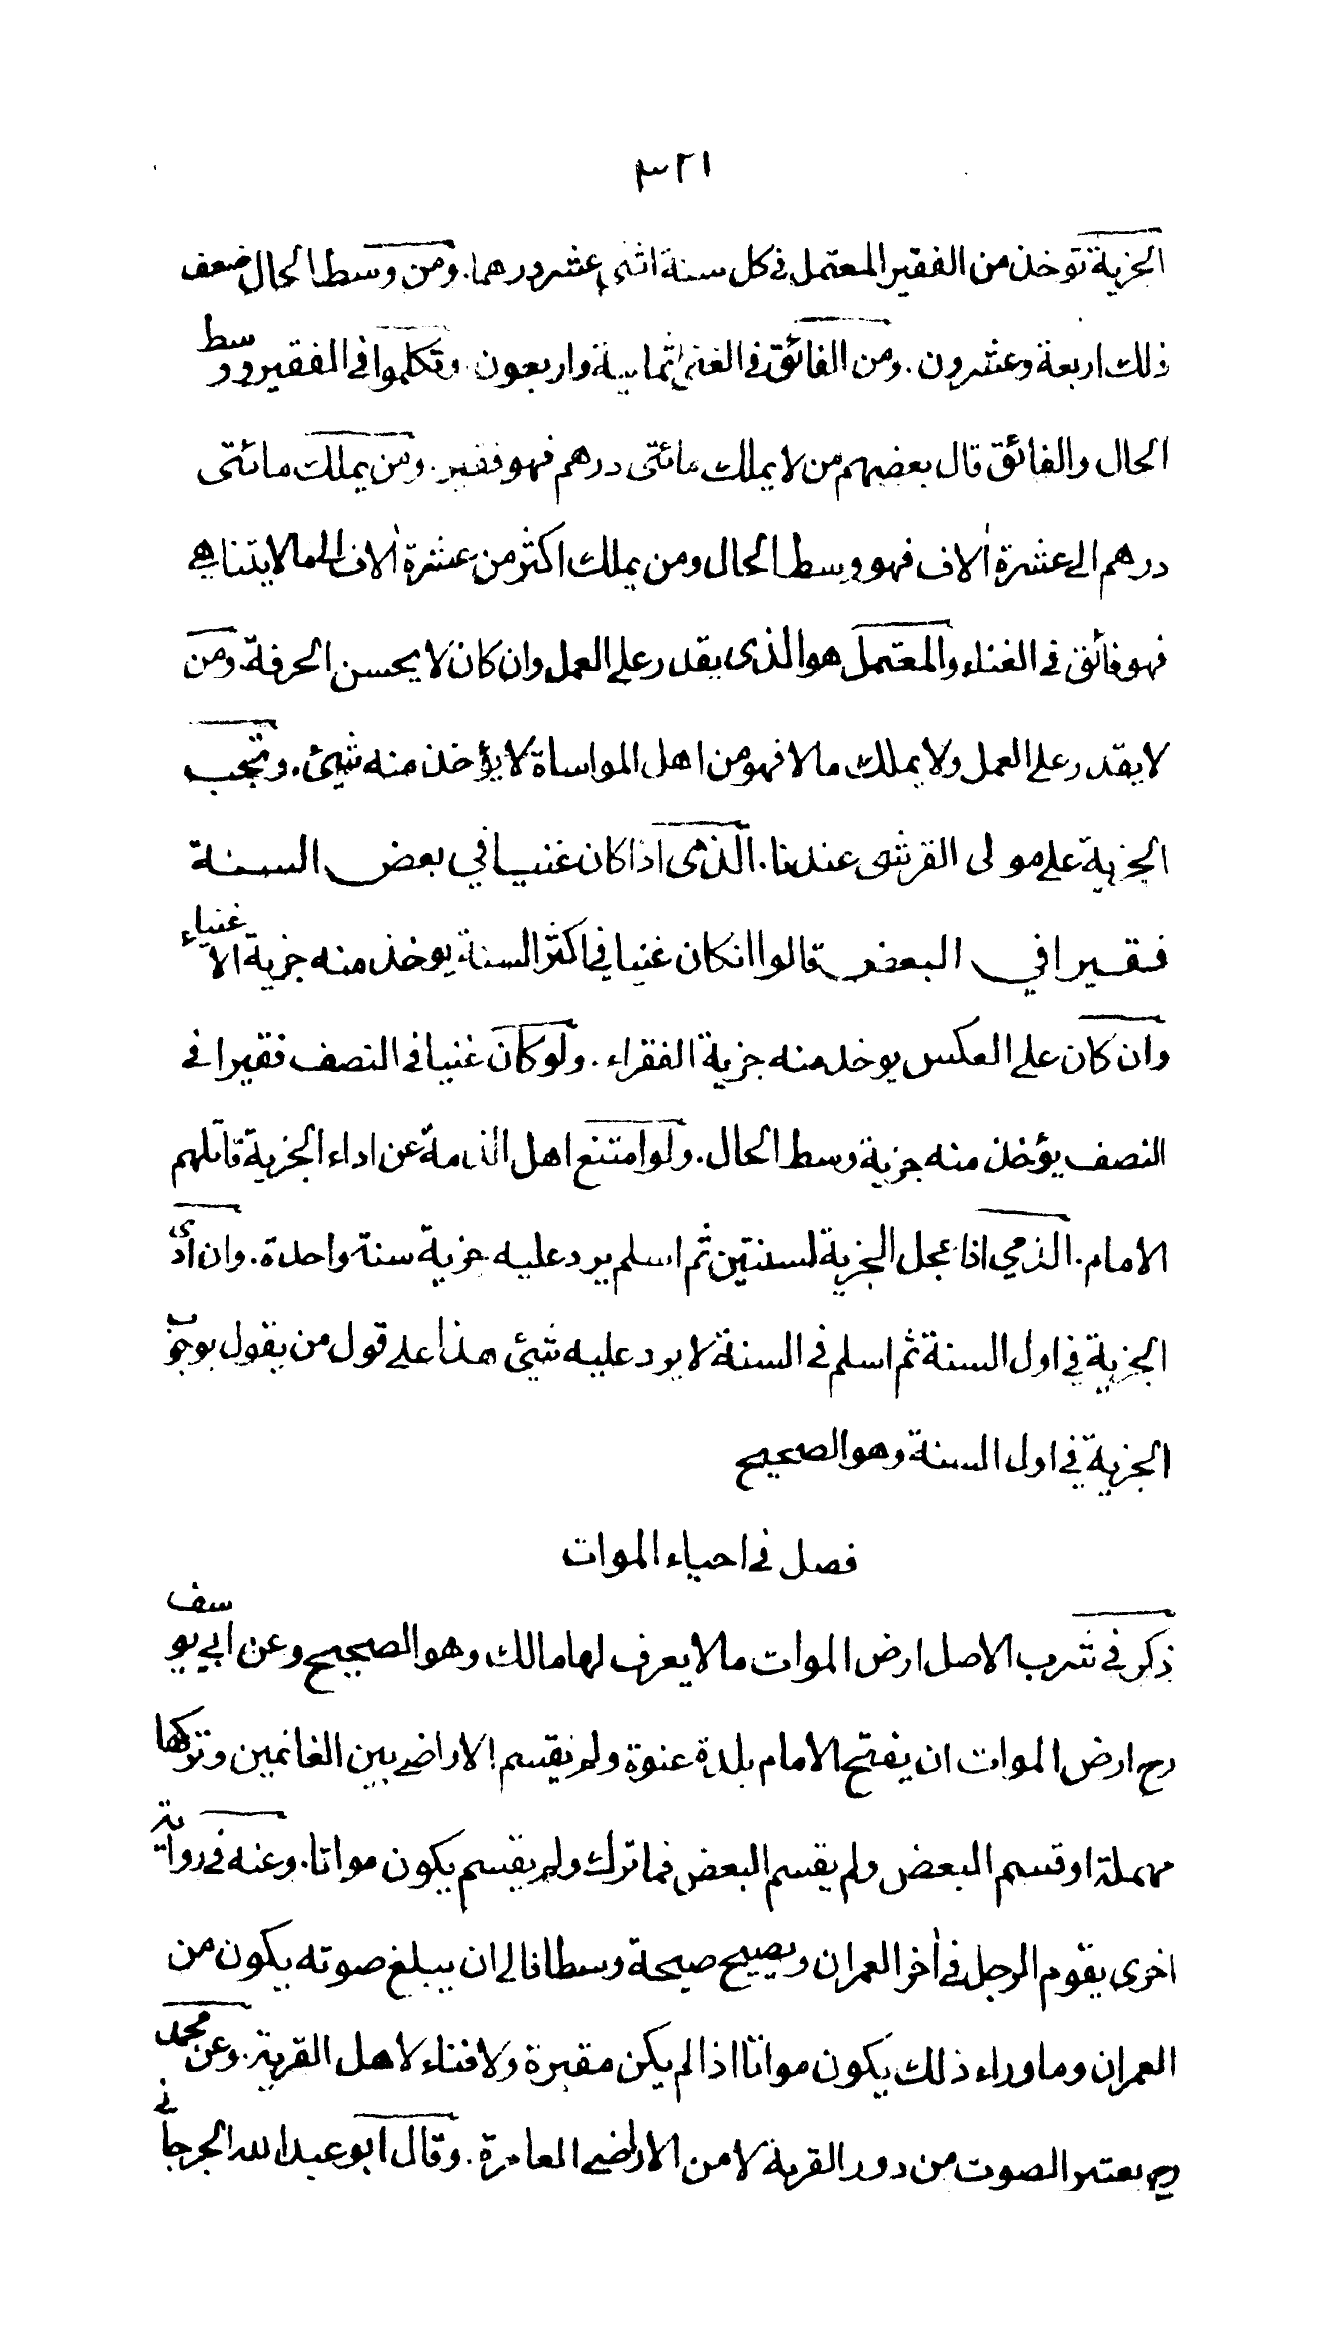 ٣٢١
الجزية تؤخذ من الفقير المعتمل في كل سنة اثنى عشر درهما. ومن وسط الحال ضعف
ذلك اربعة وعشرون. ومن الفائق في الغنى ثمانية واربعون. وتكلموا في الفقير ووسط
الحال والفائق قال بعضهم من لا يملك مائتى درهم فهو فقير. ومن يملك مائتى
درهم الى عشرة ألاف فهو وسط الحال ومن يملك اكثر من عشرة ألاف الى ما لا يتناهى
فهو فائق في الغناء والمعتمل هو الذى يقدر على العمل وان كان لا يحسن الحرفة. ومن
لا يقدر على العمل ولا يملك مالا فهو من اهل المواساة لا يؤخذ منه شيئ. وتجب
الجزية على مولى القرشى عندنا. الذمى اذا كان غنيا في بعض السنة
فقيرا في البعض قالوا انكان غنيا في اكثر السنة يوخذ منه جزية الاغنياء
وان كان على العكس يوخذ منه جزية الفقراء. ولو كان غنيا في النصف فقيرا في
النصف يؤخذ منه جزية وسط الحال. ولو امتنع اهل الذمة عن اداء الجزية قاتلهم
الامام. الذمي اذا عجل الجزية لسنتين ثم اسلم يرد عليه جزية سنة واحدة. وان ادى
الجزية في اول السنة ثم اسلم في السنة لا يرد عليه شيئ هذا على قول من يقول بوجوب
الجزية في اول السنة وهو الصحيح
فصل في احياء الموات
ذكر في شرب الاصل ارض الموات ما لا يعرف لها مالك وهو الصحيح وعن ابي يوسف
رح ارض الموات ان يفتح الامام بلدة عنوة ولم يقسم الاراضى بين الغانمين وتركها
مهملة او قسم البعض ولم يقسم البعض فما ترك ولم يقسم يكون مواتا. وعنه في رواية
اخرى يقوم الرجل في أخر العمران ويصيح صيحة وسطا فالى ان يبلغ صوته يكون من
العمران وما وراء ذلك يكون مواتا اذا لم يكن مقبرة ولا فناء لاهل القرية. وعن محمد
رح يعتبر الصوت من دور القرية لا من الاراضى العامرة. وقال ابو عبد الله الجرجاني